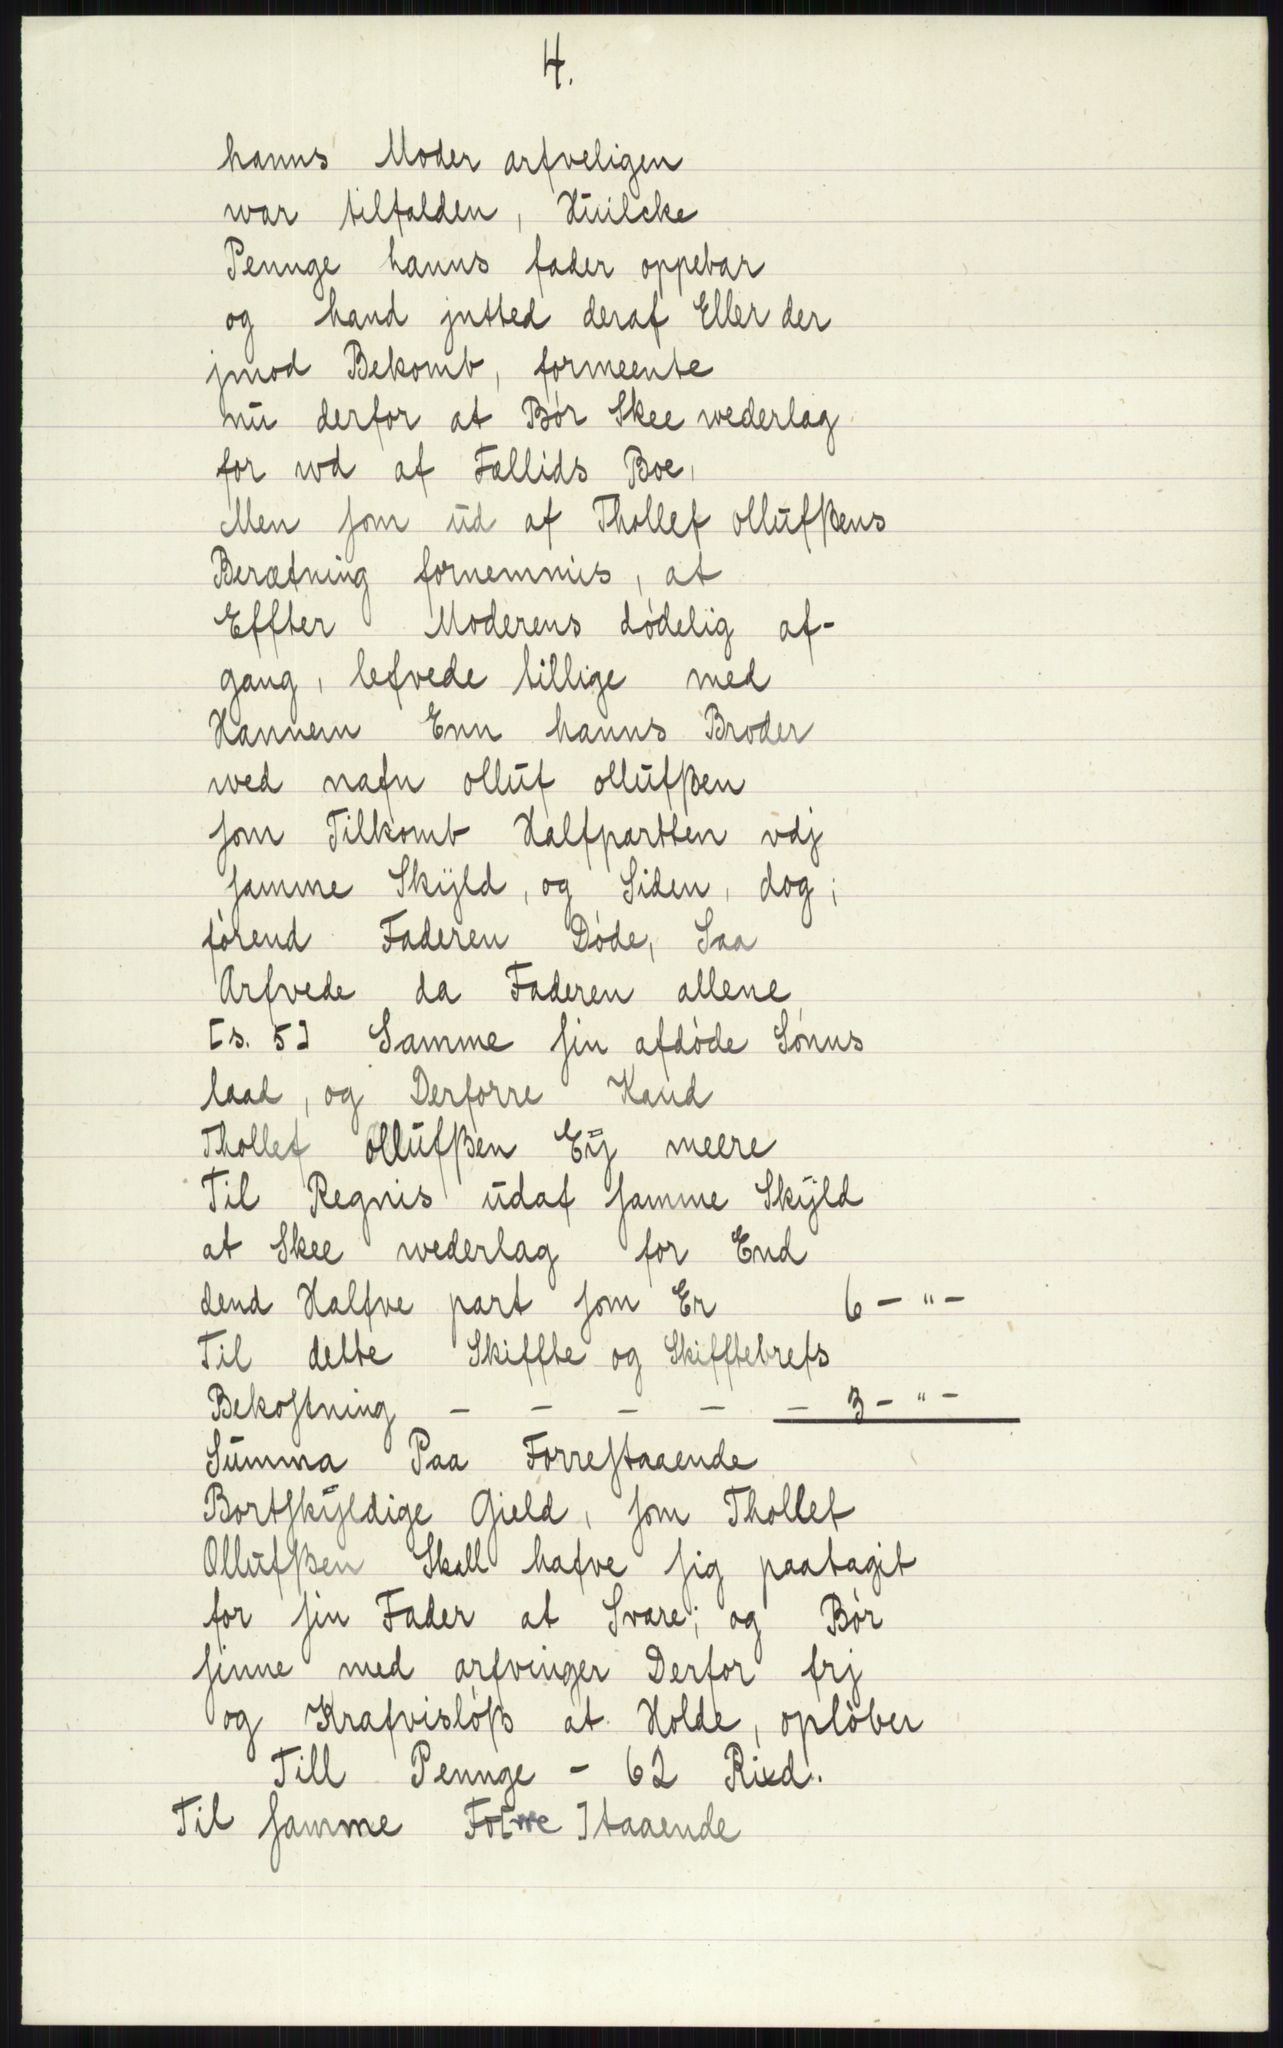 4.
hanns Moder arfveligen
war tilfalden, Huilcke
Pennge hanns fader oppebar
og hand jntted deraf Eller der
jmod Bekomb, formeente
nu derfor at Bør Skee wederlag
for wd af Fællids Boe,
Men som ud af Thollef ollufßens
Beretning fornemmis, at
Effter Moderens dødelig af-
gang, lefvede tillige med
Hannem Enn hanns Broder
wed nafn olluf ollufßen
som Tilkomb Halfpartten vdj
samme Skÿld, og Siden, dog;
førend Faderen Døde, Saa
Arfvede da Faderen allene
[s. 5] Samme sin afdøde Sønns
laad, og Derforre Kand
Thollef Ollufßen Eÿ meere
Til Regnis udaf samme Skÿld
at Skee wederlag for End
dend Halfve part som Er 6 - " -
Til dette Skiffte og Skifftebrefs
Bekostning - - - - - 3 - " -
Summa Paa Forrestaaende
Bortskÿldige Gield, som Thollef
Ollufßen Skall hafve sig paatagit
for sin Fader at Svare; og Bør
sinne med arfvinger Derfor frj
og Krafvisløß at Holde, opløber
Till Pennge - 62 Rixd.
Til samme Fo[rre]staaende